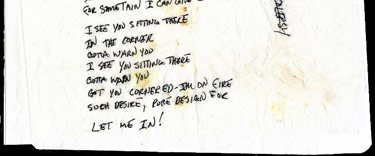 FOR SOMETAIN I CAN
I SEE YOU SITTING THERE
IN THE CORNER
GOTTA WARN YOU
I SEE YOU SITTING THERE
GOTTA WARN YOU
GOT YOU CORNERED - I'M ON FIRE
SUCH DESIRE, PURE DESIGN FOR
LET ME IN!